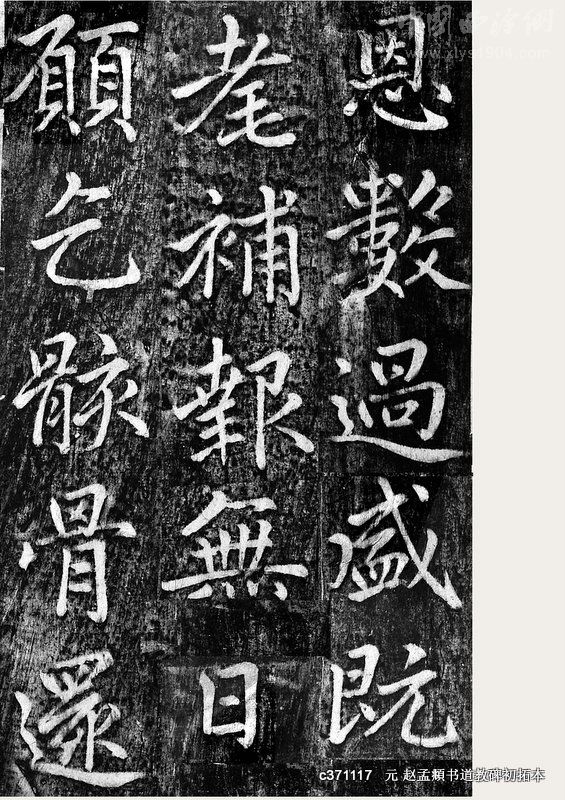 恩數過盛既
耄補報無日
願乞骸骨還
中国西泠網
www.xlys1904.com
c371117 元 赵孟頫书道教碑初拓本